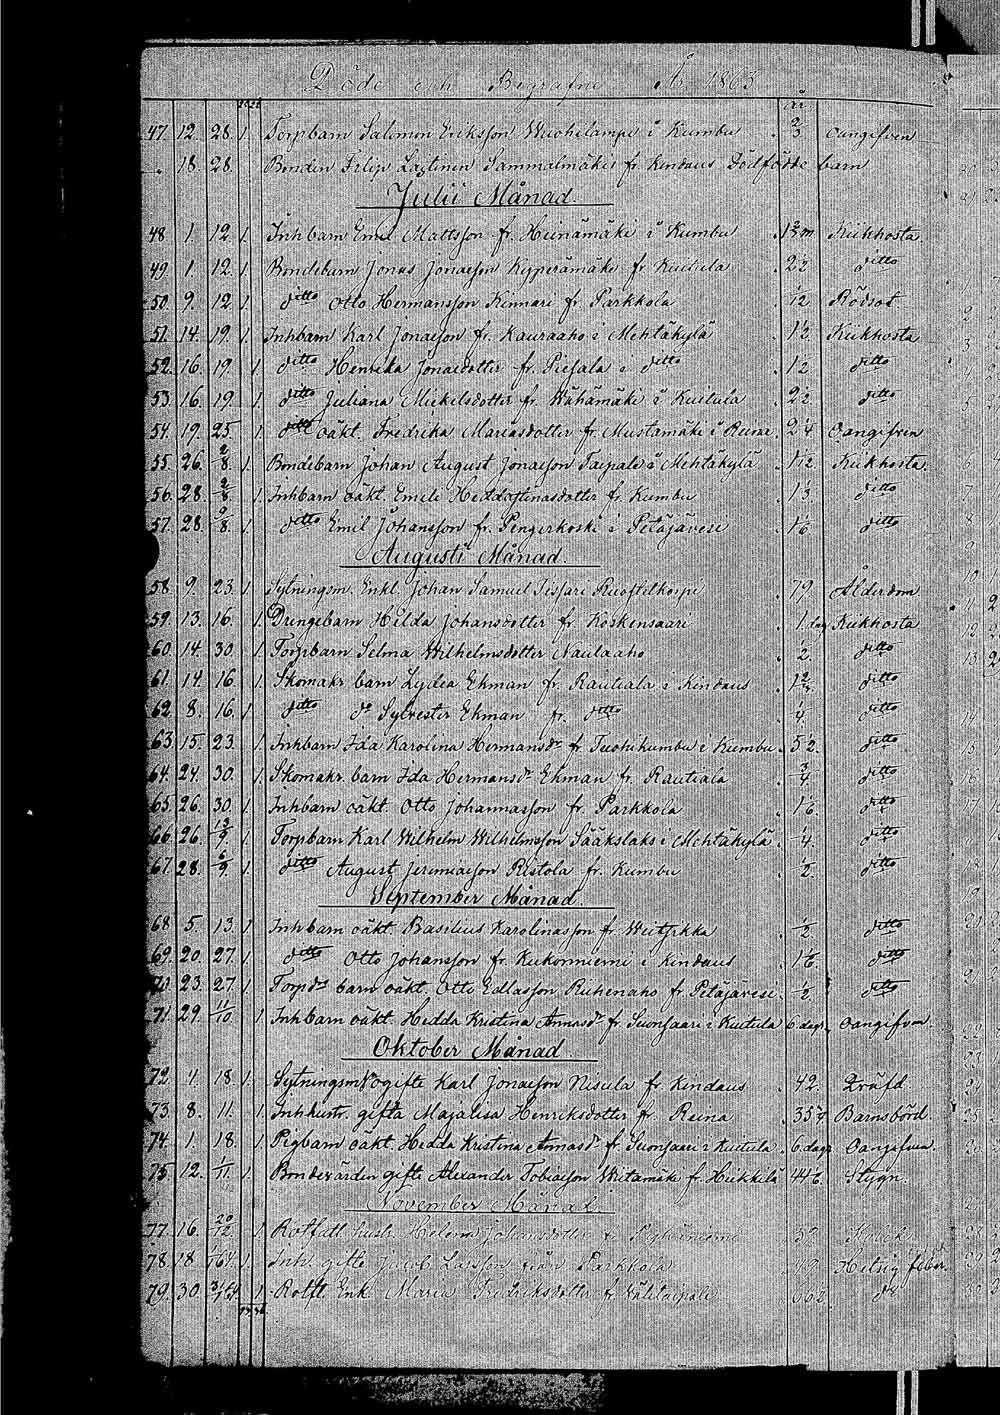 Döde och Begrafne År 1863
år
47. 12. 28. 1. Torpbarn Salomon Eriksson Wuohelampi i Kumbu 2/3 Oangifven
18. 28. Bonden Filip Lastinen Sammalmäki fr. Kindaus Dödfödde barn
Julii Månad.
48. 1. 12. 1. Inhbarn Emel Mattsson fr. Heinämäki i Kumbu Kikhosta
49. 1. 12. 1. Bondebarn Jonas Jonaesson Kyperämäki fr. Kuitula 2 1/2 ditto
50. 9. 12. 1. ditto Otto Hermansson Kinnari fr Parkkola 1/12 Rödsot
51. 14. 19. 1. Inhbarn Karl Jonaesson fr. Kauraaho i Mehtäkylä 1 1/2 Kikhosta
52. 16. 19. 1. ditto Henrika Jonaedotter fr. Piesala i ditto 1/2 ditto
53. 16. 19. 1. ditto Juliana Mickelsdotter fr. Wähämäki i Kuitula 2 1/2 ditto
54. 19. 25. 1. ditto oäkt. Fredrika Mariasdotter fr. Mustamäki i Reina 2 1/4 Oangifven
55. 26. 2/8. 1. Bondebarn Johan August Jonaesson Taipale i Mehtäkylä 1 1/12 Kikhosta
56. 28. 2/8. 1. Inhbarn oäkt. Emeli Heddastinasdotter fr. Kumbu 1 1/3 ditto
57. 28. 9/8. 1. ditto Emil Johansson fr. Pengerkoski i Petäjävesi 1 1/6 ditto
Augusti Månad.
58. 9. 23. 1. Sytningsm. Enkl. Johan Samuel 79. Ålderdom
59. 13. 16. 1. Drengebarn Hilda Johansdotter fr. Koskensaari 1 dag Kikhosta
60. 14. 30. 1. Torpbarn Selma Wilhelmsdotter Naulaaho 1/2. ditto
61. 14. 16. 1. Skomakr barn Lydia Ekman fr. Rautiala i Kindaus ditto
62. 8. 16. 1. ditto do Sylvester Ekman fr. ditto 1/4. ditto
63. 15. 23. 1. Inhbarn Ida Karolina Hermansdr fr Tuohikumbu i Kumbu 5 1/2. ditto
64. 24. 30. 1. Skomakr. barn Ida Hermansdr Ekman fr. Rautiala 3/4. ditto
65. 26. 30. 1. Inhbarn oäkt Otto Johannasson fr. Parkkola 1 1/6. ditto
66. 26. 13/9. 1. Torpbarn Karl Wilhelm Wilhelmsson Sääkslaks i Mehtäkylä 1/4. ditto
67. 28. 6/9. 1. ditto August Jeremiaesson Ristola fr. Kumbu 1/2. ditto
September Månad.
68. 5. 13. 1. Inhbarn oäkt. Basilius Karolinasson fr. 1/2 ditto
69. 20. 27. 1. ditto Otto Johansson fr. Kukonniemi i Kindaus 1 1/6. ditto
70. 23. 27. 1. Torpds barn oäkt. Otto Edlasson Ruhenaho fr Petäjävesi 1/2 ditto
71. 29. 11/10. 1. Inhbarn oäkt. Hedda Kristina Annasdr fr Suonsaari i Kuitula 6 dagr. Oangifven
Oktober Månad
72. 4. 18. 1. Sytningsm ogifte Karl Jonaesson Nisula fr. Kindaus 42. Träfd
73. 8. 11. 1. Inhhustr. gifta Majalisa Henriksdotter fr. Reina Barnsbörd
74. 1. 18. 1. Pigbarn oäkt. Hedda Kristina Annasdr fr Suonsaari i Kuitula 6 dagr Oangifven.
75. 12. 1/11. 1. Bondevärden gifte Alexander Tobiaesson Wiitamäki fr. Heikkilä Stygn.
November Månad.
77. 16. 20/12. 1. Rotfatt. husb. Helena Johansdotter fr 59.
78. 18. 1. Inh. gifte Jacob Larsson från Parkkola Hetsig feber.
79. 30. 1. Rotft. Enk. Maria Fredriksdotter fr Wälitaipale do